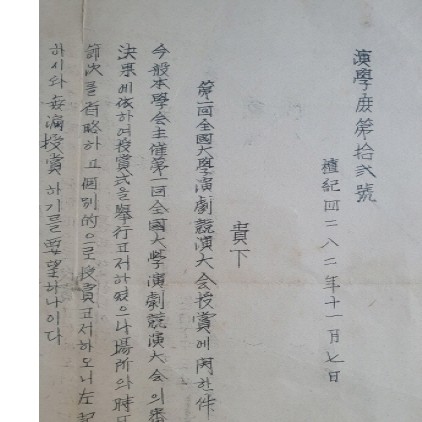 演學庶第拾弐號
檀紀四二八二年十一月七日
貴下
第一回全國大學演劇競演大会授賞에関한件
今般本學会主催第一回全國大學演劇競演大会의審
決果에依하여授賞式을擧行코저하였으나場所와時日
節次를省略하고個別的으로授賞코저하오니左記
하시와 無漏授賞하기를要望하나이다